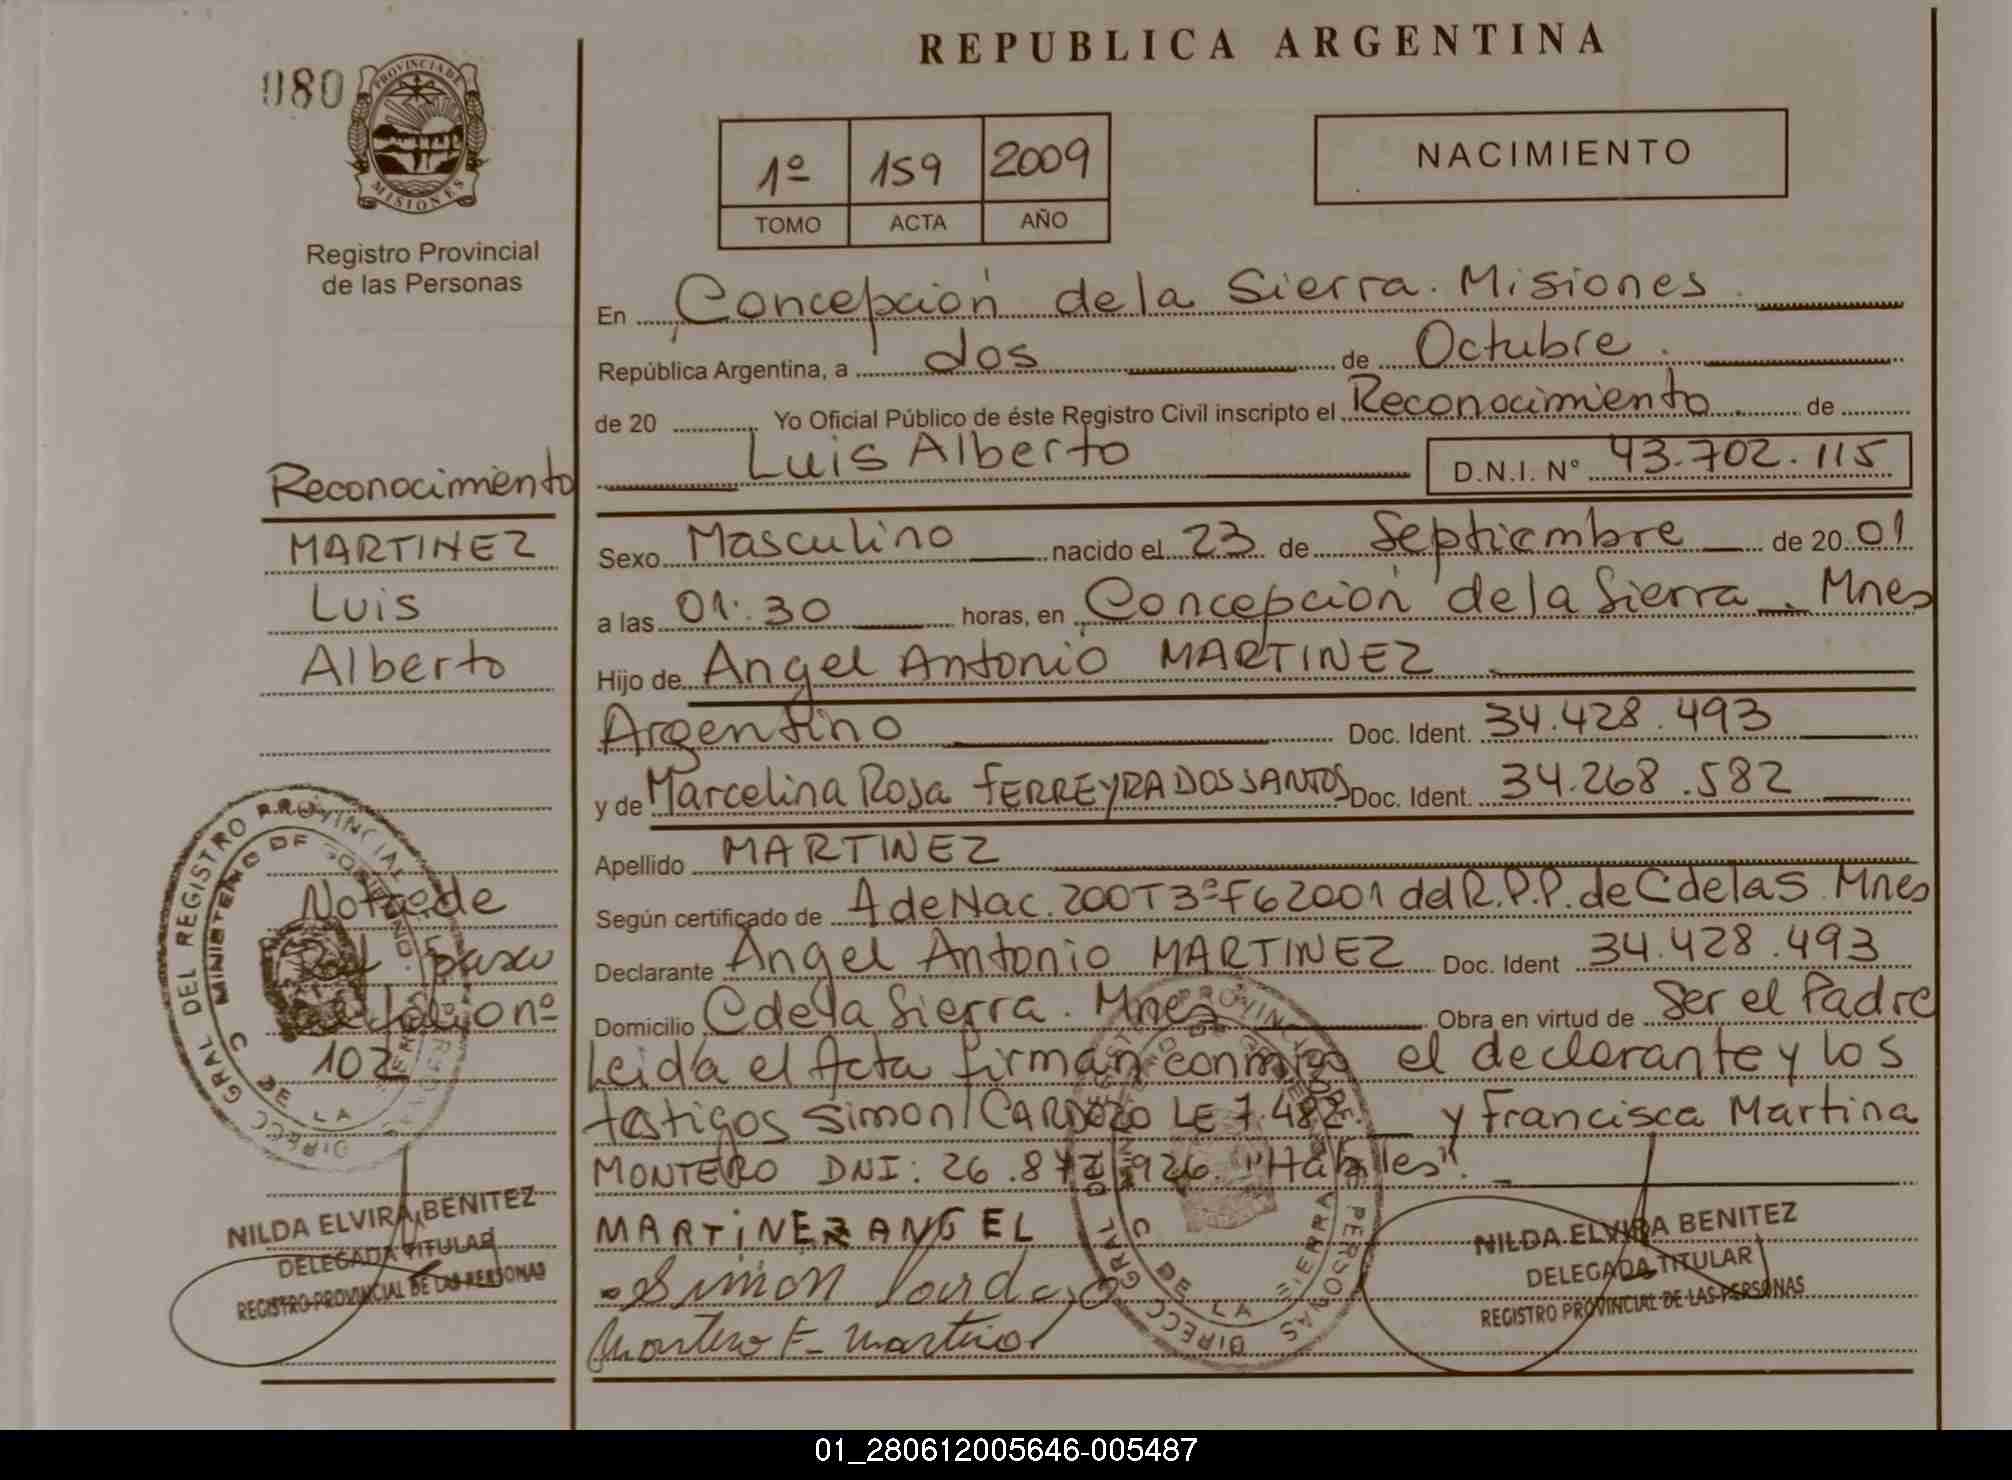 080
PROVINCIA DE
MISIONES
Registro Provincial
de las Personas
REPUBLICA ARGENTINA
1º 159 2009
TOMO ACTA AÑO
NACIMIENTO
En Concepción de la Sierra. Misiones
República Argentina, a dos de Octubre.
de 20 Yo Oficial Público de éste Registro Civil inscripto el Reconocimiento de
Luis Alberto D.N.I. N° 43.702.115
Sexo Masculino nacido el 23 de Septiembre de 20 01
a las 01:30 horas, en Concepción de la Sierra. Mnes
Hijo de Angel Antonio MARTINEZ
Argentino Doc. Ident. 34.428.493
y de Marcelina Rosa FERREYRA DOS SANTOS Doc. Ident. 34.268.582
Apellido MARTINEZ
Según certificado de A de Nac. 200 T3º F6 2001 del R.P.P. de C de la S. Mnes
Declarante Angel Antonio MARTINEZ Doc. Ident 34.428.493
Domicilio C de la Sierra. Mnes Obra en virtud de Ser el Padre
Leida el Acta firman conmigo el declarante y los
testigos Simon CARDOZO LE 7.482. y Francisca Martina
MONTERO DNI: 26.872.926. "Hábiles".
MARTiNEZ ANGEL
Simon Cardozo
Montero F. Martina
NILDA ELVIRA BENITEZ
DELEGADA TITULAR
REGISTRO PROVINCIAL DE LAS PERSONAS
Reconocimiento
MARTINEZ
Luis
Alberto
Nota de
Ref. pasa
al folio nº
102
DIRECC GRAL DEL REGISTRO PROVINCIAL
MINISTERIO DE GOBIERNO
C DE LA
NILDA ELVIRA BENITEZ
DELEGADA TITULAR
REGISTRO PROVINCIAL DE LAS PERSONAS
DIRECC GRAL
PERSONAS
C DE LA SIERRA
01_280612005646-005487